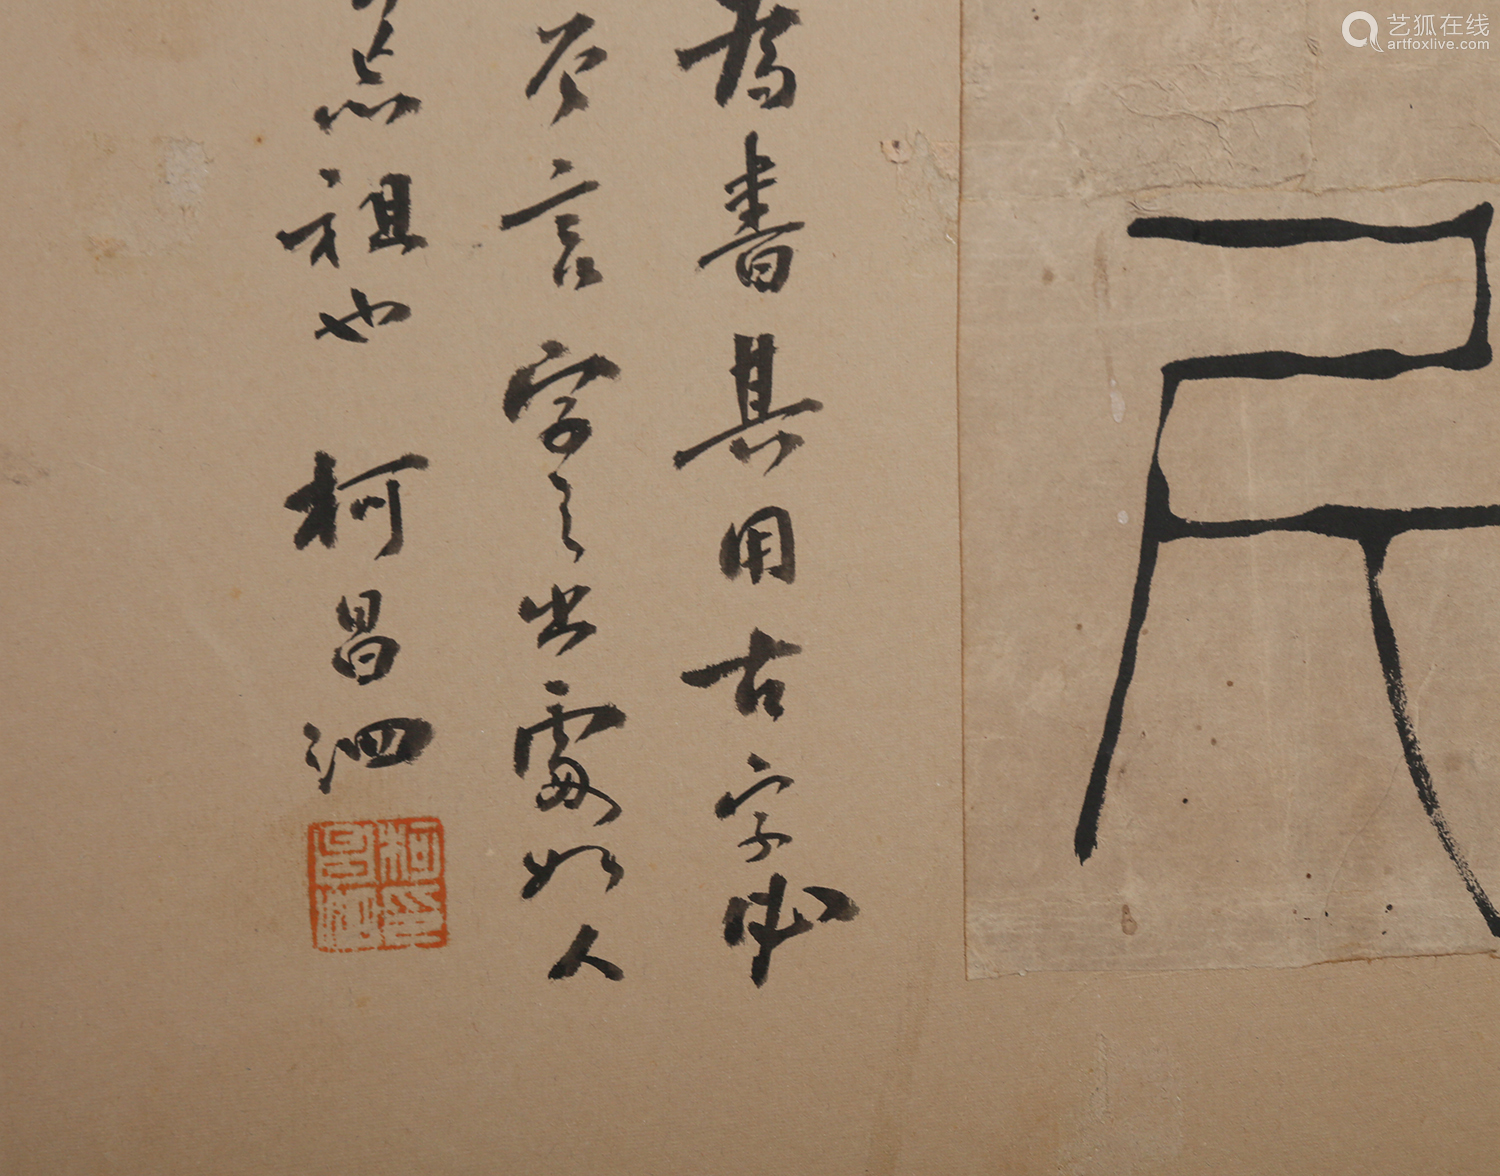 為書其用古字必
不言字之出處如人
忘祖也 柯昌泗
柯昌泗印
艺狐在线
artfoxlive.com